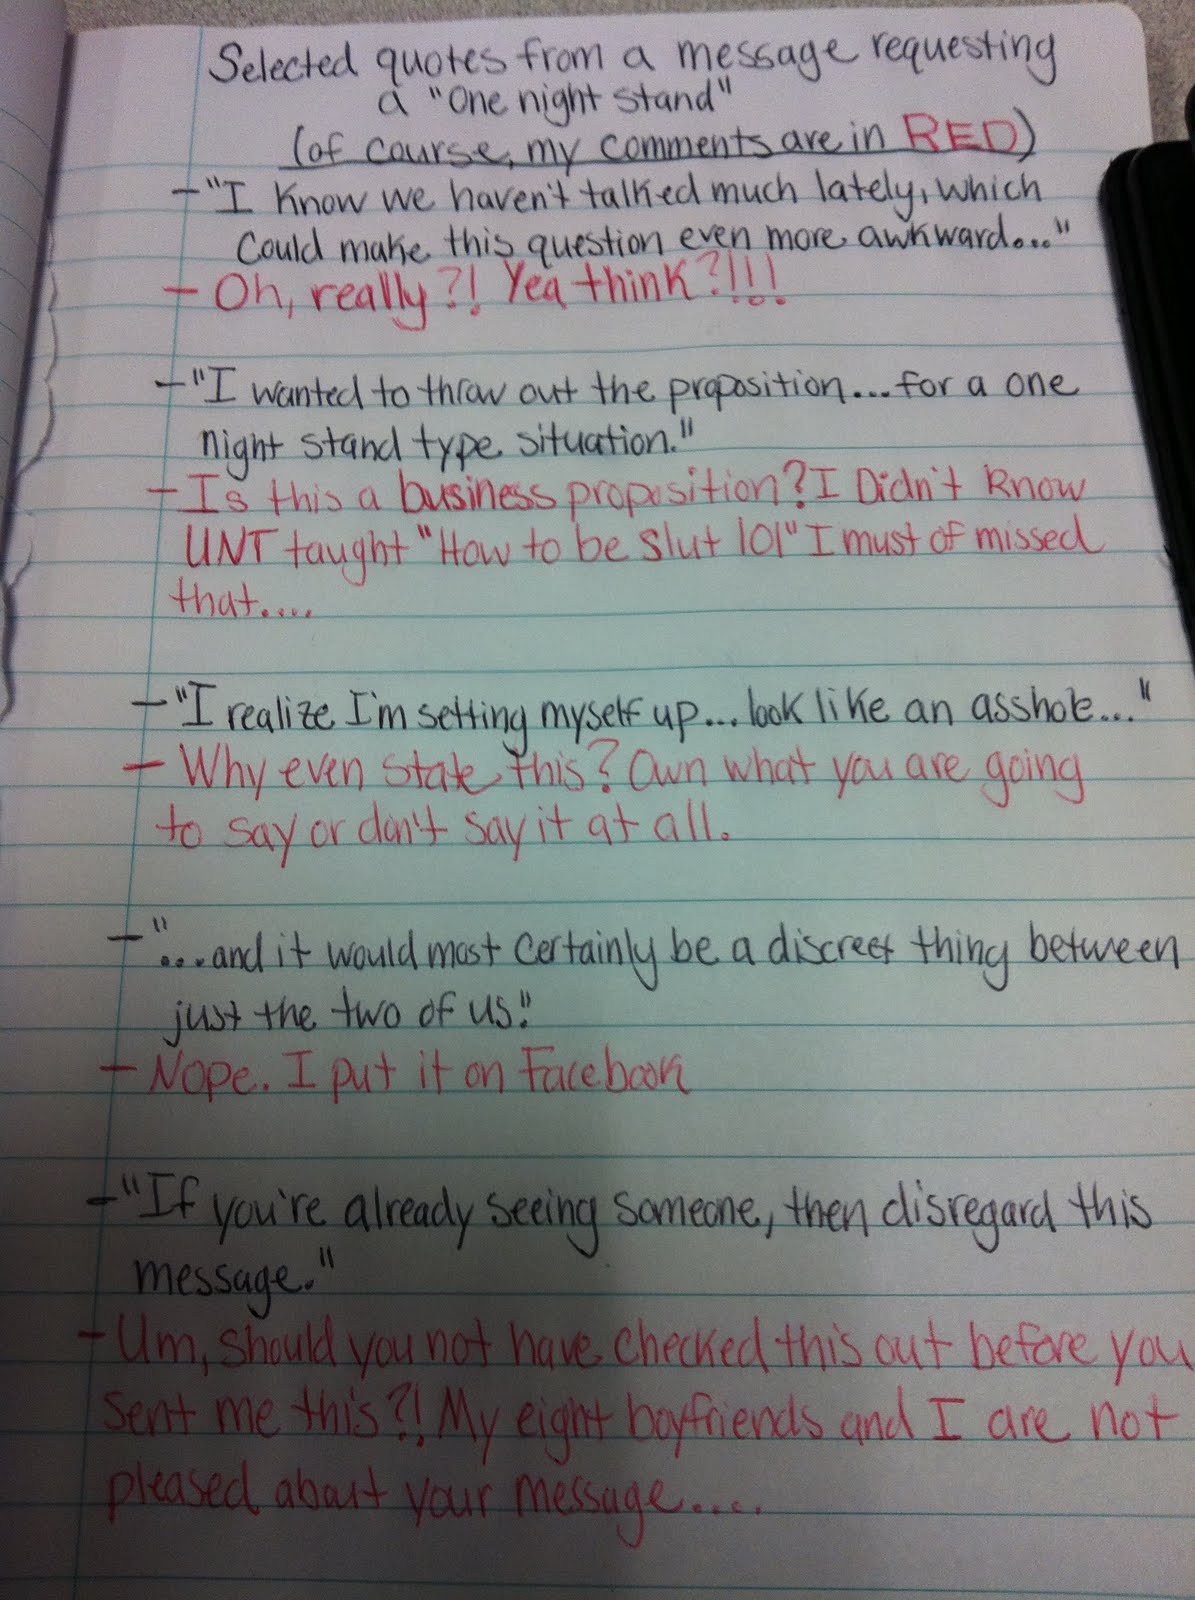 Selected quotes from a message requesting
a "One night stand"
(of course, my comments are in RED)
- "I know we haven't talked much lately, which
could make this question even more awkward..."
- Oh, really?! Yea think?!!!
- "I wanted to throw out the proposition... for a one
night stand type situation."
- Is this a business proposition? I Didn't know
UNT taught "How to be slut 101" I must of missed
that....
- "I realize I'm setting myself up... look like an asshole..."
- Why even state this? Own what you are going
to say or don't say it at all.
- "...and it would most certainly be a discreet thing between
just the two of us."
- Nope. I put it on Facebook
- "If you're already seeing someone, then disregard this
message."
- Um, should you not have checked this out before you
sent me this?! My eight boyfriends and I are not
pleased about your message....